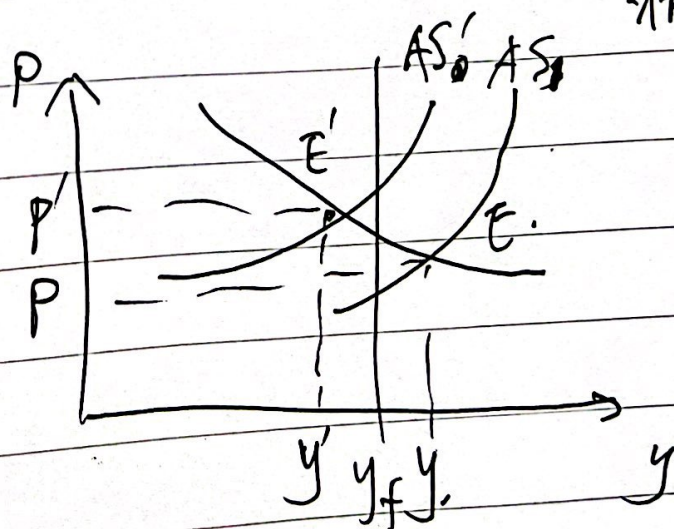 P AS₀' AS₁
E'
P' E.
P
y' y_f y. y